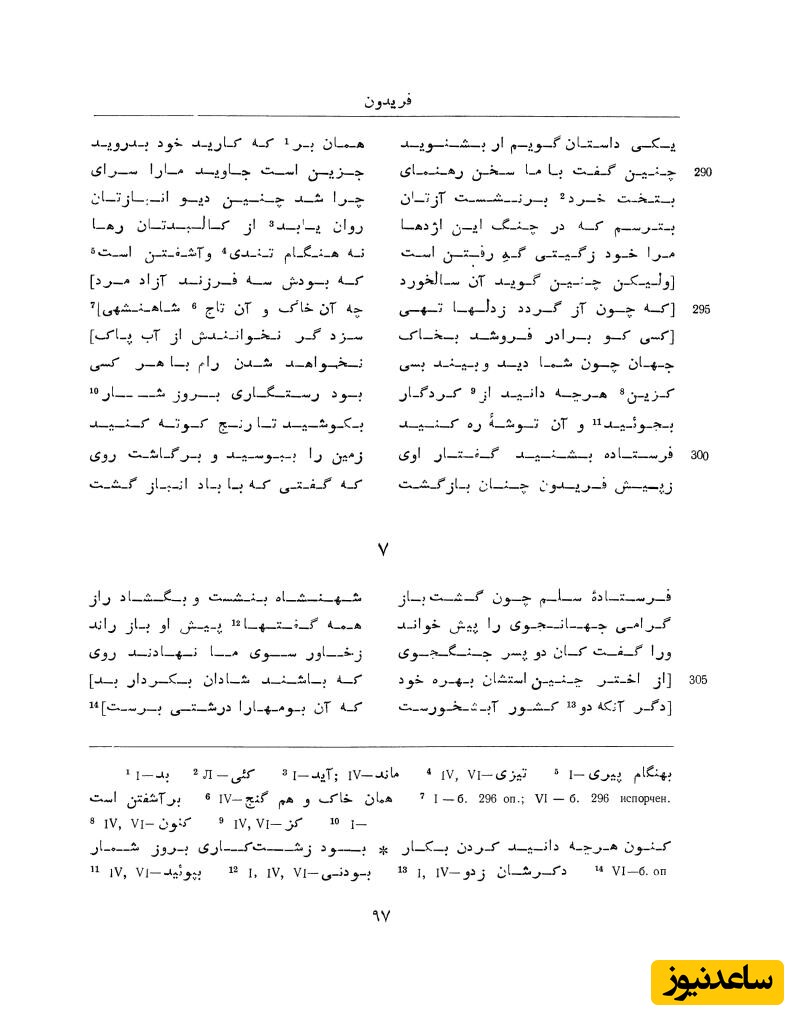 فریدون
یکی داستان گویم ار بشنوید همان بر¹ که کارید خود بدروید
290 چنین گفت با ما سخن رهنمای جزین است جاوید مارا سرای
بتخت خرد² برنشست آزتان چرا شد چنین دیو انبازتان
بترسم که در چنگ این اژدها روان یابد³ از کالبدتان رها
مرا خود زگیتی گه رفتن است نه هنگام تندی⁴ وآشفتن است⁵
[ولیکن چنین گوید آن سالخورد که بودش سه فرزند آزاد مرد]
295 [که چون آز گردد زدلها تهی چه آن خاک و آن تاج⁶ شاهنشهی]⁷
[کسی کو برادر فروشد بخاک سزد گر نخوانندش از آب پاک]
جهان چون شما دید وبیند بسی نخواهد شدن رام با هر کسی
کزین⁸ هرچه دانید از⁹ کردگار بود رستگاری بروز شمار¹⁰
بجوئید¹¹ و آن توشهٔ ره کنید بکوشید تا رنج کوته کنید
300 فرستاده بشنید گفتار اوی زمین را ببوسید و برگاشت روی
زپیش فریدون چنان بازگشت که گفتی که با باد انباز گشت
۷
فرستادهٔ سلم چون گشت باز شهنشاه بنشست و بگشاد راز
گرامی جهانجوی را پیش خواند همه گفتها¹² پیش او باز راند
ورا گفت کان دو پسر جنگجوی زخاور سوی ما نهادند روی
305 [از اختر چنین استشان بهره خود که باشند شادان بکردار بد]
[دگر آنکه دو¹³ کشور آبشخورست که آن بومهارا درشتی برست]¹⁴
¹ I—بد ² Л—کئی ³ I—آید; IV—ماند ⁴ IV, VI—تیزی ⁵ I—بهنگام پیری
برآشفتن است ⁶ IV—همان خاک و هم گنج ⁷ I — б. 296 оп.; VI — б. 296 испорчен.
⁸ IV, VI—کنون ⁹ IV, VI—کز ¹⁰ I—
کنون هرچه دانید کردن بکار * بود زشت‌کاری بروز شمار
¹¹ IV, VI—بپوئید ¹² I, IV, VI—بودنی ¹³ I, IV—دگرشان زدو ¹⁴ VI—б. оп
۹۷
ساعدنیوز